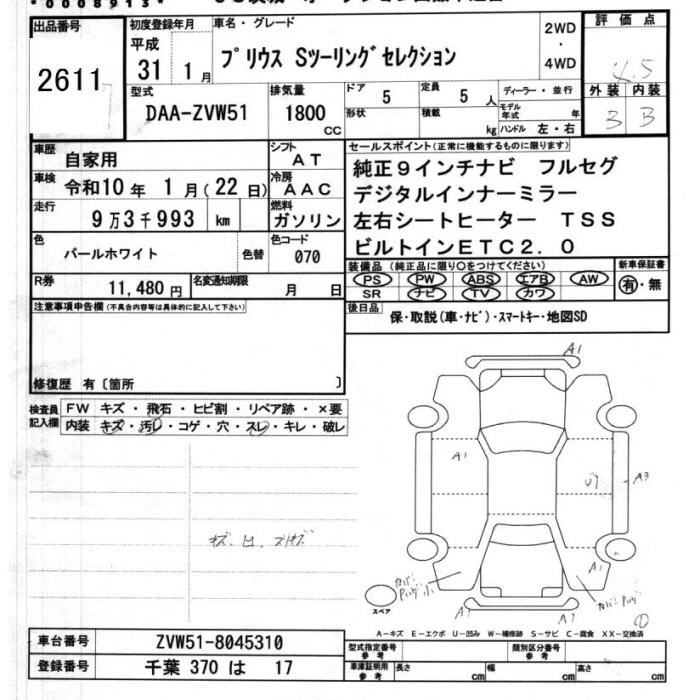 *0008913*
出品番号
2611
初度登録年月
平成
31年 1月
車名・グレード
プリウス Sツーリングセレクション
2WD
・
4WD
評価点
4.5
外装 内装
B B
型式
DAA-ZVW51
排気量
1800
CC
ドア
5
定員
5人
形状
積載
kg
ディーラー・並行
モデル年式 年
ハンドル 左・右
車歴
自家用
シフト
AT
車検
令和10年 1月(22日)
冷房
AAC
走行
9万3千993 km
燃料
ガソリン
色
パールホワイト
色替
色コード
070
R券
11,480円
名変通知期限
月 日
セールスポイント(正常に機能するものに限ります)
純正9インチナビ フルセグ
デジタルインナーミラー
左右シートヒーター TSS
ビルトインETC2.0
装備品(純正品に限り○をつけてください)
PS PW ABS エアB AW
SR ナビ TV カワ
新車保証書
有・無
後日品
保・取説(車・ナビ)・スマートキー・地図SD
注意事項申告欄(不具合内容等は具体的に記入して下さい)
修復歴 有〔箇所 〕
検査員記入欄
FW キズ・飛石・ヒビ割・リペア跡・×要
内装 キズ・汚レ・コゲ・穴・スレ・キレ・破レ
A1
A1
A3
A1
A1
A1
スペア
A-キズ E-エクボ U-凹み W-補修跡 S-サビ C-腐食 XX-交換済
車台番号
ZVW51-8045310
登録番号
千葉 370 は 17
型式指定番号
参考
類別区分番号
参考
車庫証明用
参考
長さ cm
幅 cm
高さ cm